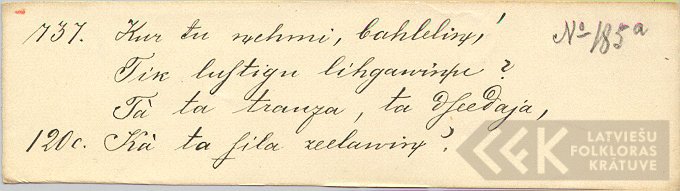 737. Kur tu ņehmi, bahleliņ,! No 185a
Tik luſtigu lihgawiņu?
Tà ta tranza, ta dſeedaja,
120c. Kà ta ſila zeelawiņ?
LATVIEŠU
FOLKLORAS
KRĀTUVE